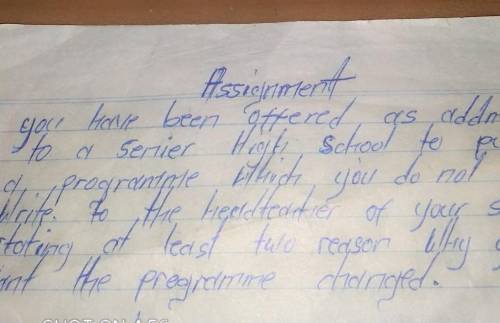 Assignment
you have been offered as addm
to a Senier High School to pu
a programme Which you do not
Write to the headteather of your s
stating at least two reason Why y
ant the pregramme changed.
SHOT ON A56